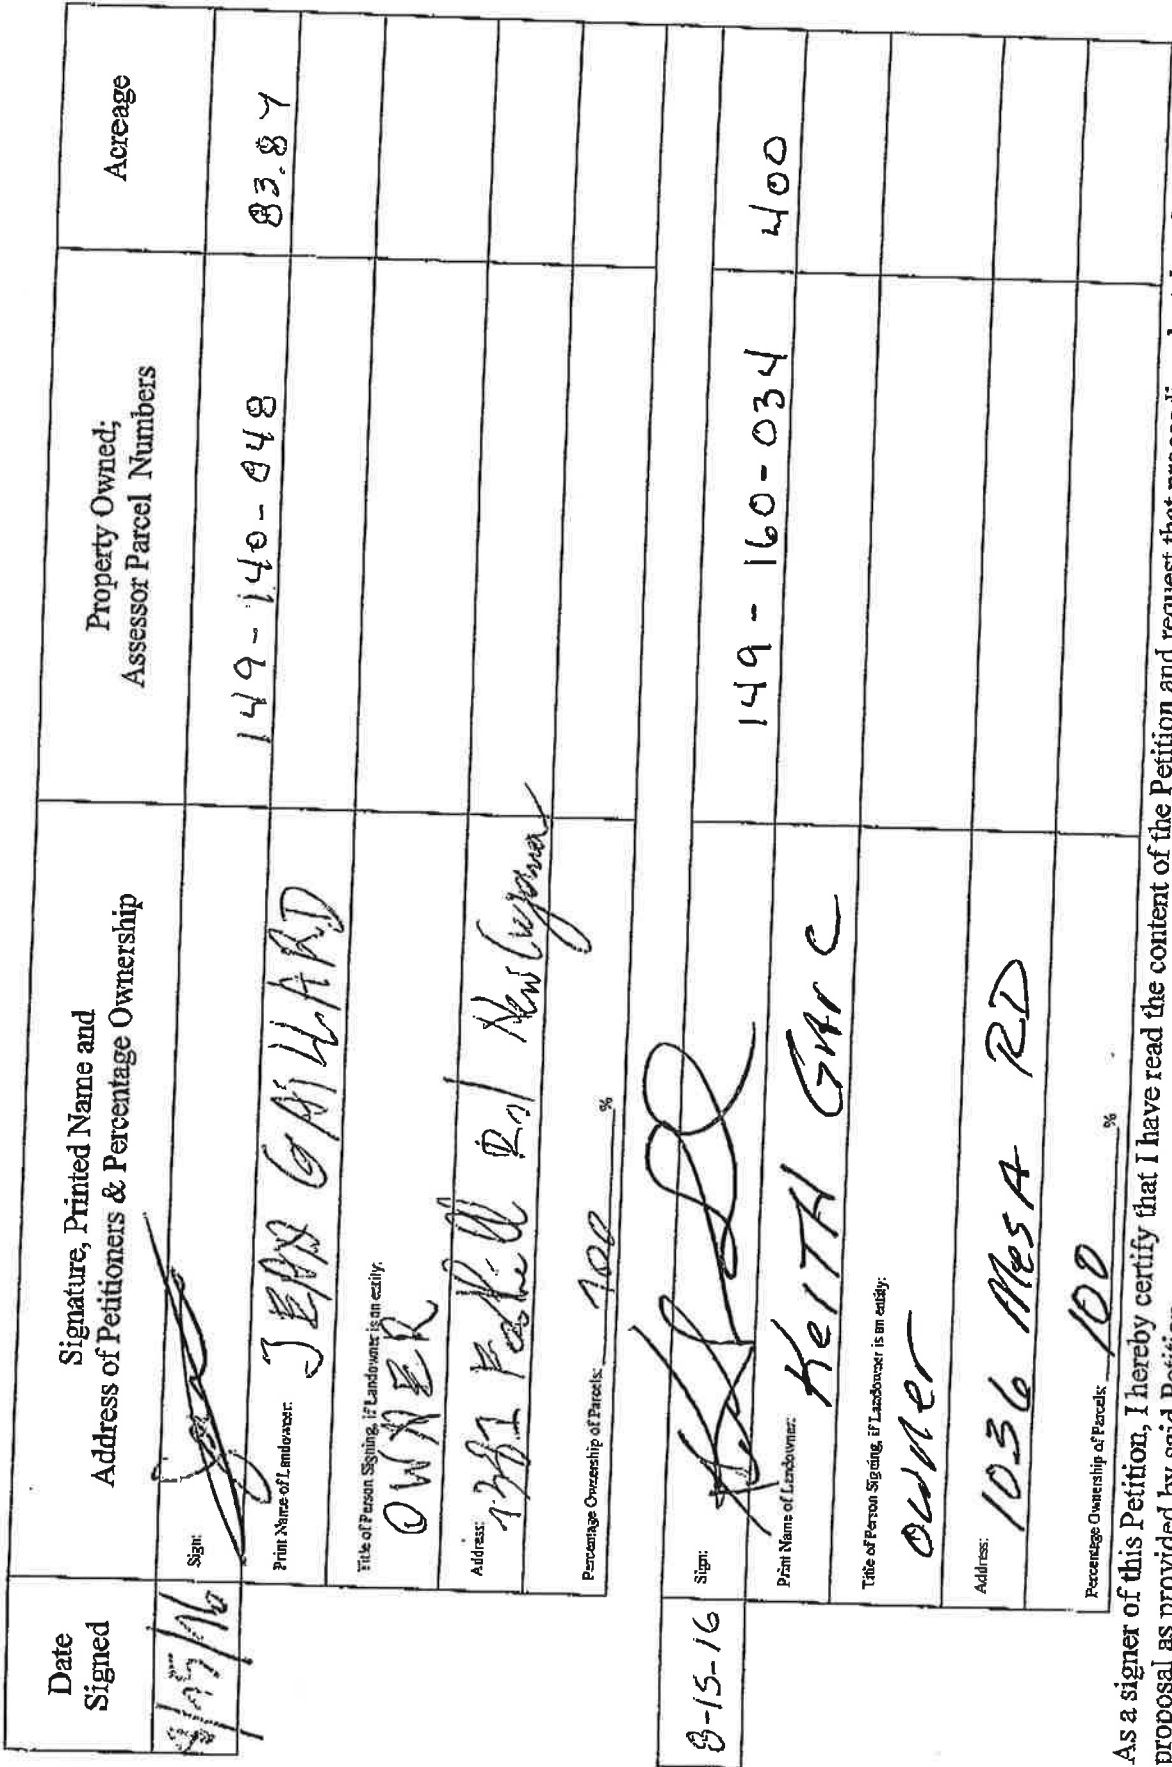 Date
Signed
Signature, Printed Name and
Address of Petitioners & Percentage Ownership
Property Owned;
Assessor Parcel Numbers
Acreage
Sign:
149-140-048
83.84
Print Name of Landowner:
JEAN GAILLARD
Title of Person Signing, if Landowner is an entity:
OWNER
Address:
Rd New Cuyama
Percentage Ownership of Parcels: 100 %
8-15-16
Sign:
149-160-034
400
Print Name of Landowner:
KeITH GArC
Title of Person Signing, if Landowner is an entity:
OWNer
Address:
1036 MesA RD
Percentage Ownership of Parcels: 100 %
As a signer of this Petition, I hereby certify that I have read the content of the Petition and request that
proposal as provided by said Petition